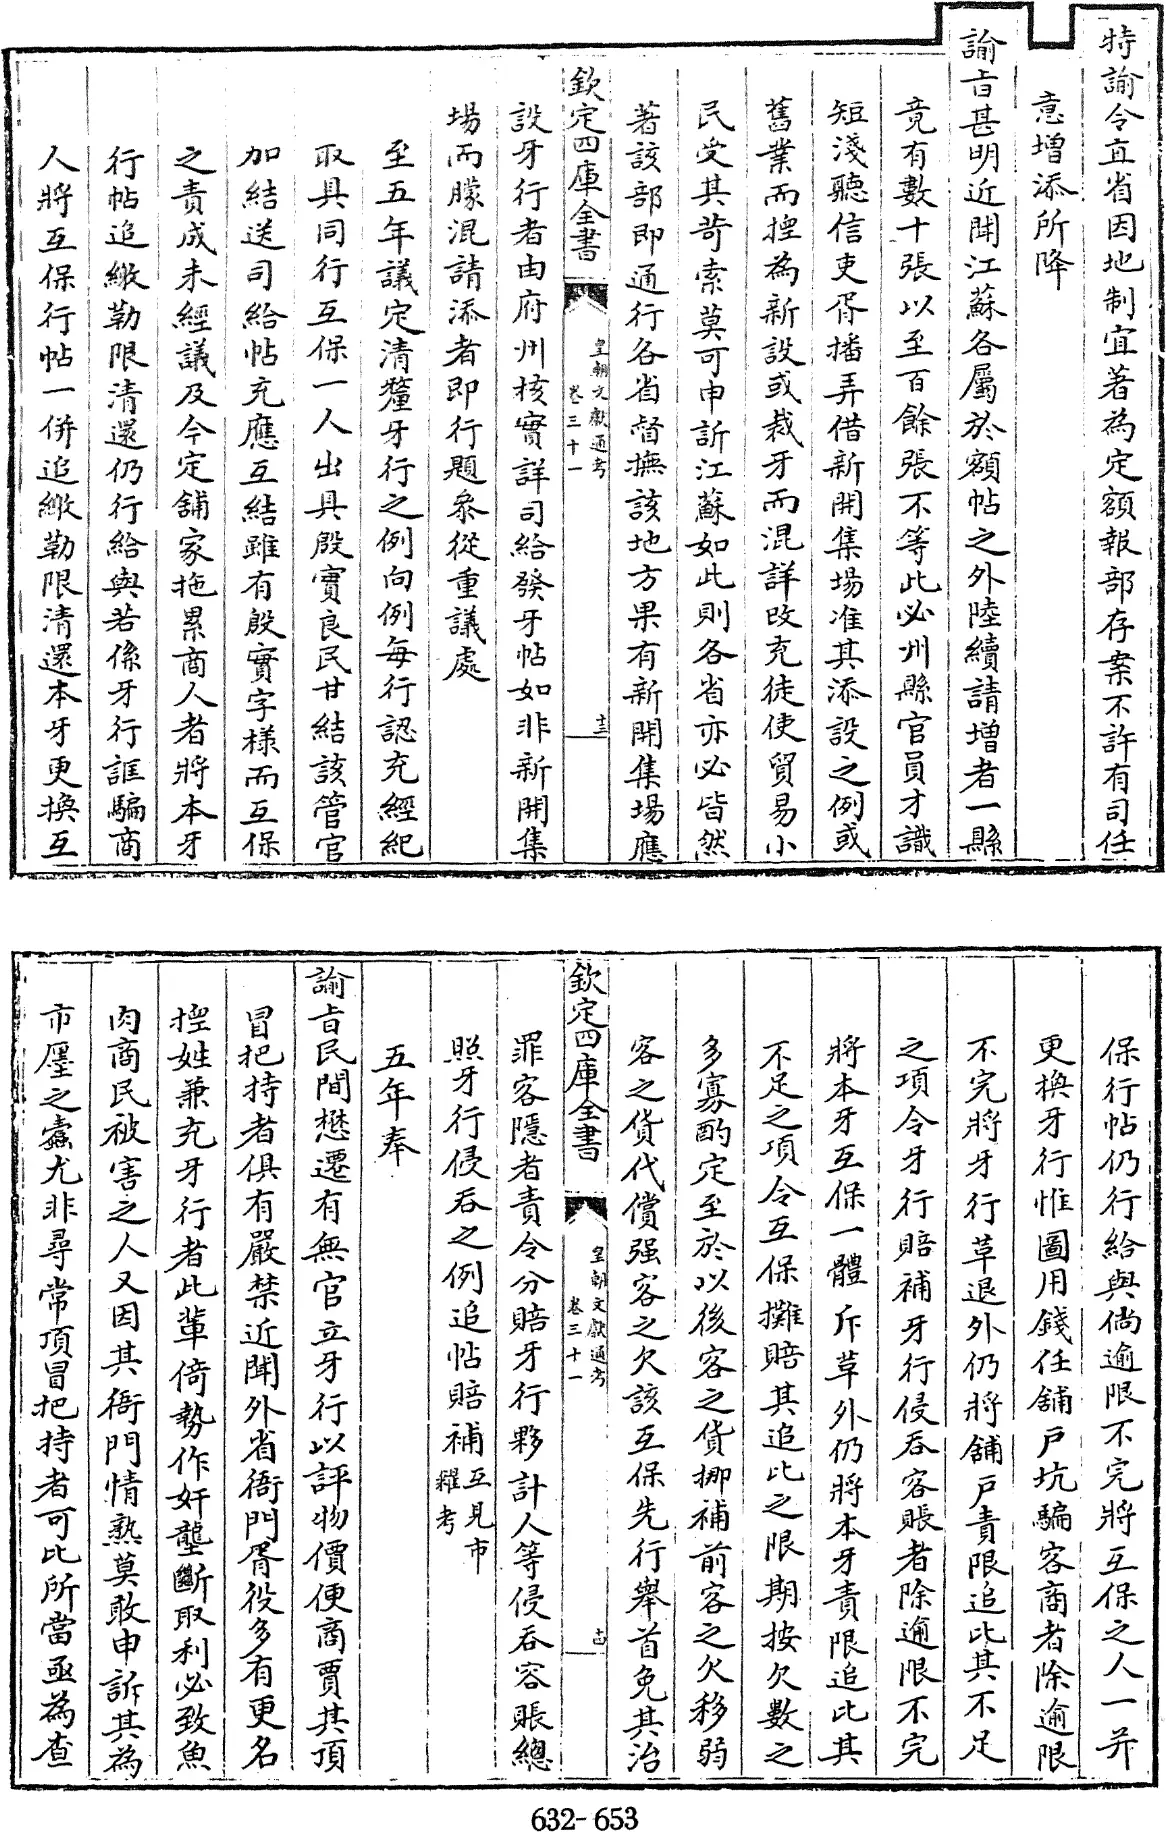 特諭令直省因地制宜著為定額報部存案不許有司任
意增添所降
諭旨甚明近聞江蘇各屬於額帖之外陸續請增者一縣
竟有數十張以至百餘張不等此必州縣官員才識
短淺聽信吏胥播弄借新開集場准其添設之例或
舊業而捏為新設或裁牙而混詳改充徒使貿易小
民受其苛索莫可申訴江蘇如此則各省亦必皆然
著該部即通行各省督撫該地方果有新開集場應
欽定四庫全書
皇朝文獻通考
卷三十一
十三
設牙行者由府州核實詳司給發牙帖如非新開集
場而朦混請添者即行題叅從重議處
至五年議定清釐牙行之例向例每行認充經紀
取具同行互保一人出具殷實良民甘結該管官
加結送司給帖充應互結雖有殷實字様而互保
之責成未經議及今定舖家拖累商人者將本牙
行帖追繳勒限清還仍行給與若係牙行誆騙商
人將互保行帖一併追繳勒限清還本牙更換互
保行帖仍行給與倘逾限不完將互保之人一并
更換牙行惟圖用錢任舖户坑騙客商者除逾限
不完將牙行革退外仍將舖户責限追比其不足
之項令牙行賠補牙行侵吞客賬者除逾限不完
將本牙互保一體斥革外仍將本牙責限追比其
不足之項令互保攤賠其追比之限期按欠數之
多寡酌定至於以後客之貨挪補前客之欠移弱
客之貨代償强客之欠該互保先行舉首免其治
欽定四庫全書
皇朝文獻通考
卷三十一
十四
罪容隱者責令分賠牙行夥計人等侵吞客賬總
照牙行侵吞之例追帖賠補互見市糴考
五年奉
諭旨民間懋遷有無官立牙行以評物價便商賈其頂
冒把持者俱有嚴禁近聞外省衙門胥役多有更名
揑姓兼充牙行者此輩倚勢作奸壟斷取利必致魚
肉商民被害之人又因其衙門情熟莫敢申訴其為
市廛之蠧尤非尋常頂冒把持者可比所當亟為查
632-653